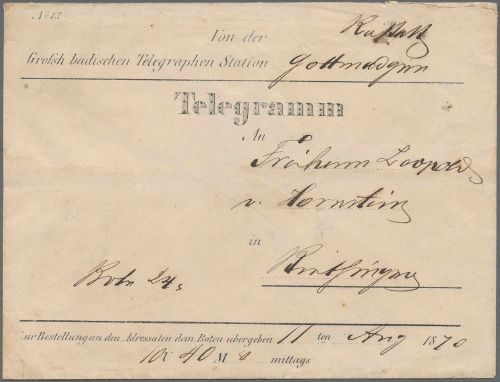 No 13.
Rastatt
Von der
Grossh badischen Telegraphen Station Gottmadgen
Telegramm
An
Freiherrn Leopold
v. Hornstein
in
Binthingen
Botn 24
Zur Bestellung an den Adressaten dem Boten übergeben 11 ten Aug 1870
10 U 40 M mittags